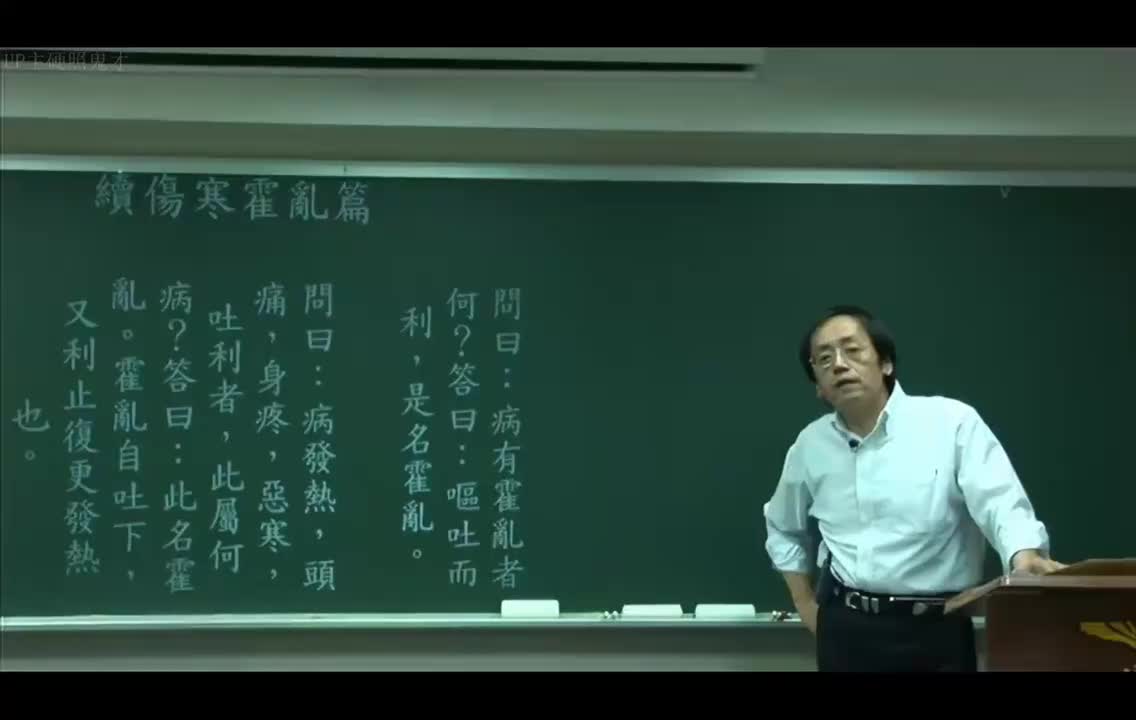 UP主硬照鬼才
續傷寒霍亂篇
問曰：病有霍亂者
何？答曰：嘔吐而
利，是名霍亂。
問曰：病發熱，頭
痛，身疼，惡寒，
吐利者，此屬何
病？答曰：此名霍
亂。霍亂自吐下，
又利止復更發熱
也。